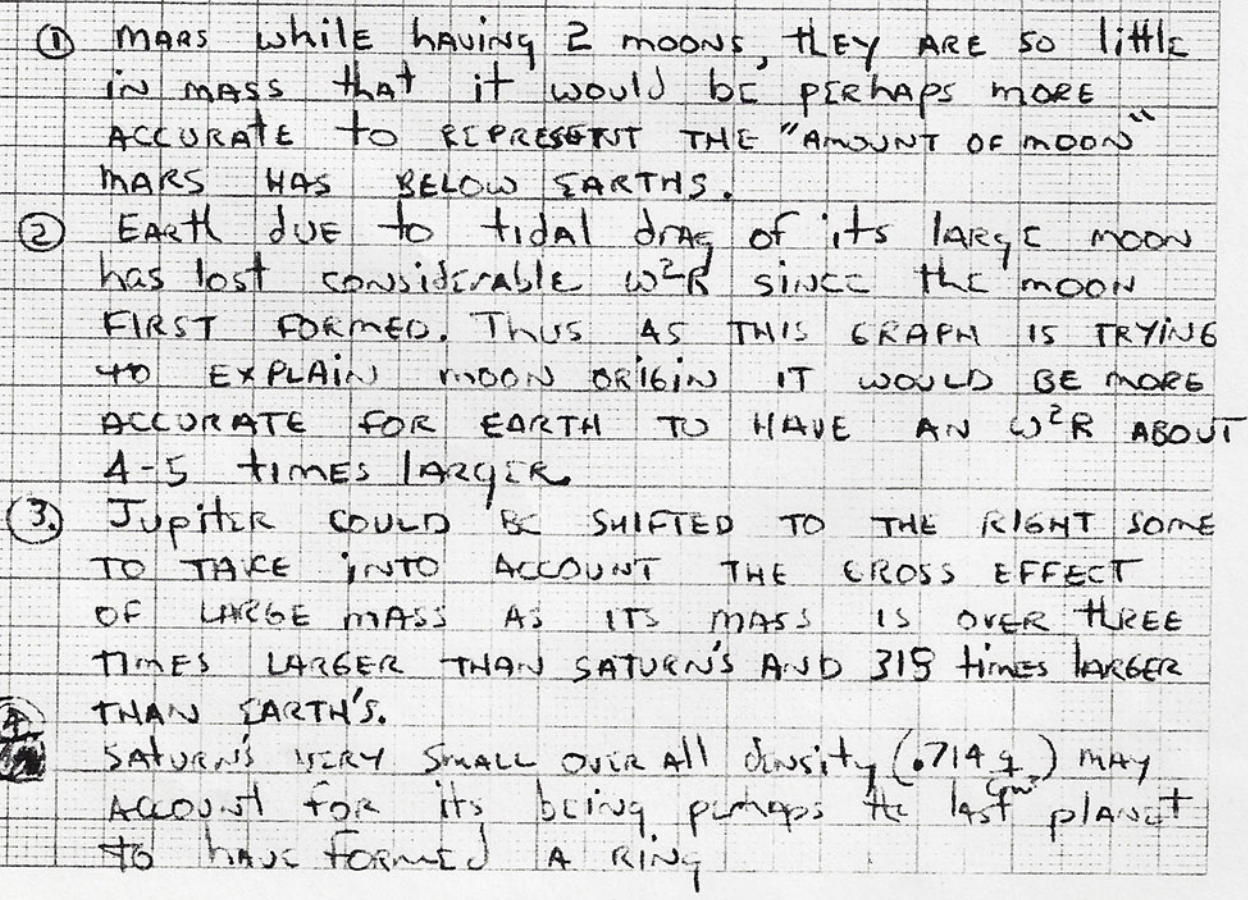 ① MARS while having 2 MOONS, thEY ARE so little
in MASS that it would be perhaps MORE
ACCURAtE to REPRESENT THE "AMOUNT OF MOON"
MARS HAS BELOW EARTHS.
② EARth duE to tidal drag of its largE MOON
has lost considErable ω²R sincE thE MOON
FIRST FORMED. Thus AS THIS GRAPH IS TRYING
to EXPLAIN MOON ORIGIN IT WOULD BE MORE
ACCURATE FOR EARTH TO HAVE AN ω²R ABOUT
4-5 tiMES lARgER.
③. JupitER COULD BE SHIFTED TO THE RIGHT SOME
TO TAKE INTO ACCOUNT THE CROSS EFFECT
OF LARGE MASS AS ITS MASS IS OVER thREE
TIMES LARGER THAN SATURN'S AND 318 tiMES lARGER
THAN EARTH'S.
④ SATURN'S VERY SMALL OVER All dENsity (.714 g/cm³) MAY
ACCOUNt foR its being perhaps the last planEt
to havE formEd A RINg